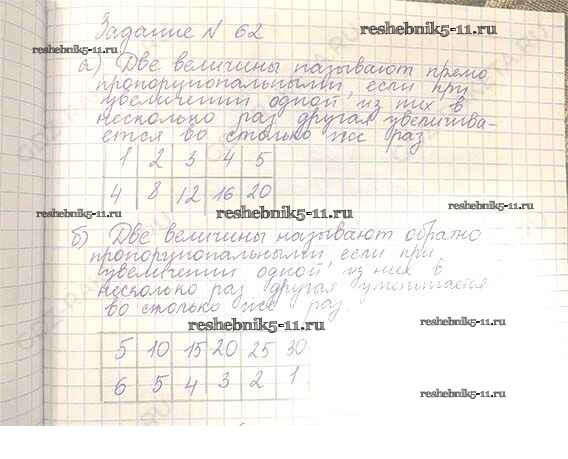 Задание № 62
reshebnik5-11.ru
reshebnik5-11.ru
а) Две величины называют прямо
пропорциональными, если при
увеличении одной из них в
несколько раз другая увеличива-
ется во столько же раз
reshebnik5-11.ru
1 2 3 4 5
4 8 12 16 20
reshebnik5-11.ru
reshebnik5-11.ru
reshebnik5-11.ru
б) Две величины называют обратно
пропорциональными, если при
увеличении одной из них в
несколько раз другая уменьшается
во столько же раз.
reshebnik5-11.ru
5 10 15 20 25 30
6 5 4 3 2 1
reshebnik5-11.ru
reshebnik5-11.ru